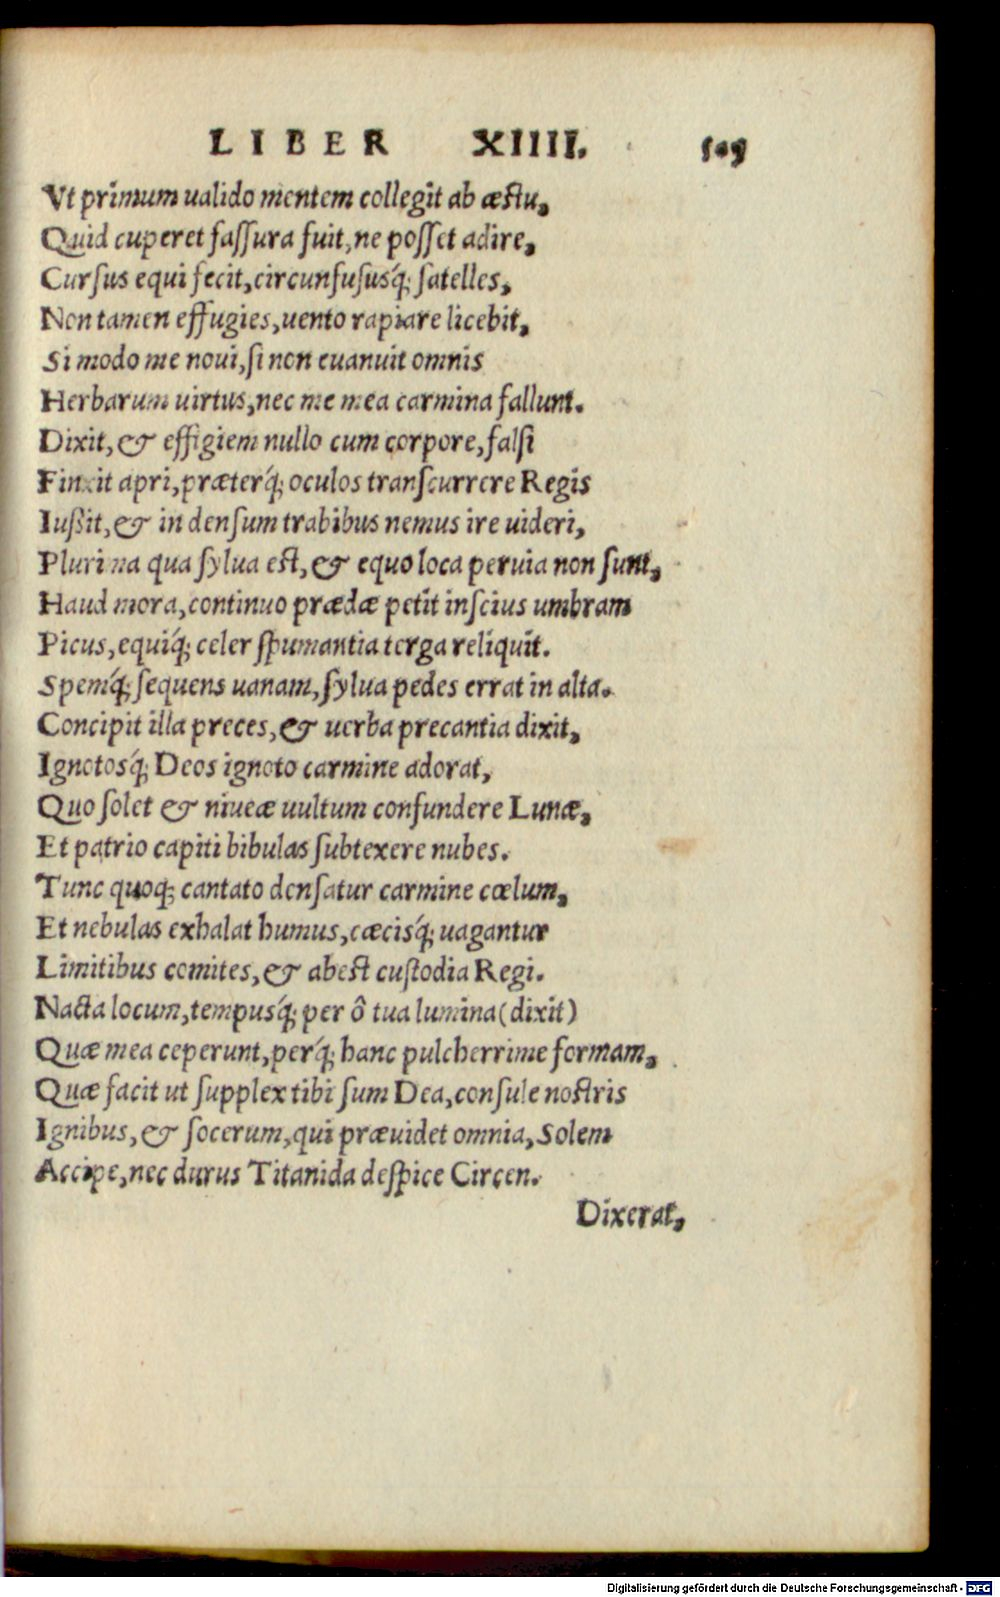 LIBER XIIII. 505
Vt primum ualido mentem collegit ab æstu,
Quid cuperet fassura fuit, ne posset adire,
Cursus equi fecit, circunfususq́; satelles,
Non tamen effugies, uento rapiare licebit,
Si modo me noui, si non euanuit omnis
Herbarum uirtus, nec me mea carmina fallunt.
Dixit, & effigiem nullo cum corpore, falsi
Finxit apri, præterq́; oculos transcurrere Regis
Iussit, & in densum trabibus nemus ire uideri,
Plurima qua sylua est, & equo loca peruia non sunt,
Haud mora, continuo prædæ petit inscius umbram
Picus, equiq́; celer spumantia terga reliquit.
Spemq́; sequens uanam, sylua pedes errat in alta.
Concipit illa preces, & uerba precantia dixit,
Ignotosq́; Deos ignoto carmine adorat,
Quo solet & niueæ uultum confundere Lunæ,
Et patrio capiti bibulas subtexere nubes.
Tunc quoq; cantato densatur carmine cœlum,
Et nebulas exhalat humus, cæcisq́; uagantur
Limitibus comites, & abest custodia Regi.
Nacta locum, tempusq́; per ô tua lumina (dixit)
Quæ mea ceperunt, perq́; hanc pulcherrime formam,
Quæ facit ut supplex tibi sum Dea, consule nostris
Ignibus, & socerum, qui præuidet omnia, Solem
Accipe, nec durus Titanida despice Circen.
Dixerat,
Digitalisierung gefördert durch die Deutsche Forschungsgemeinschaft - DFG